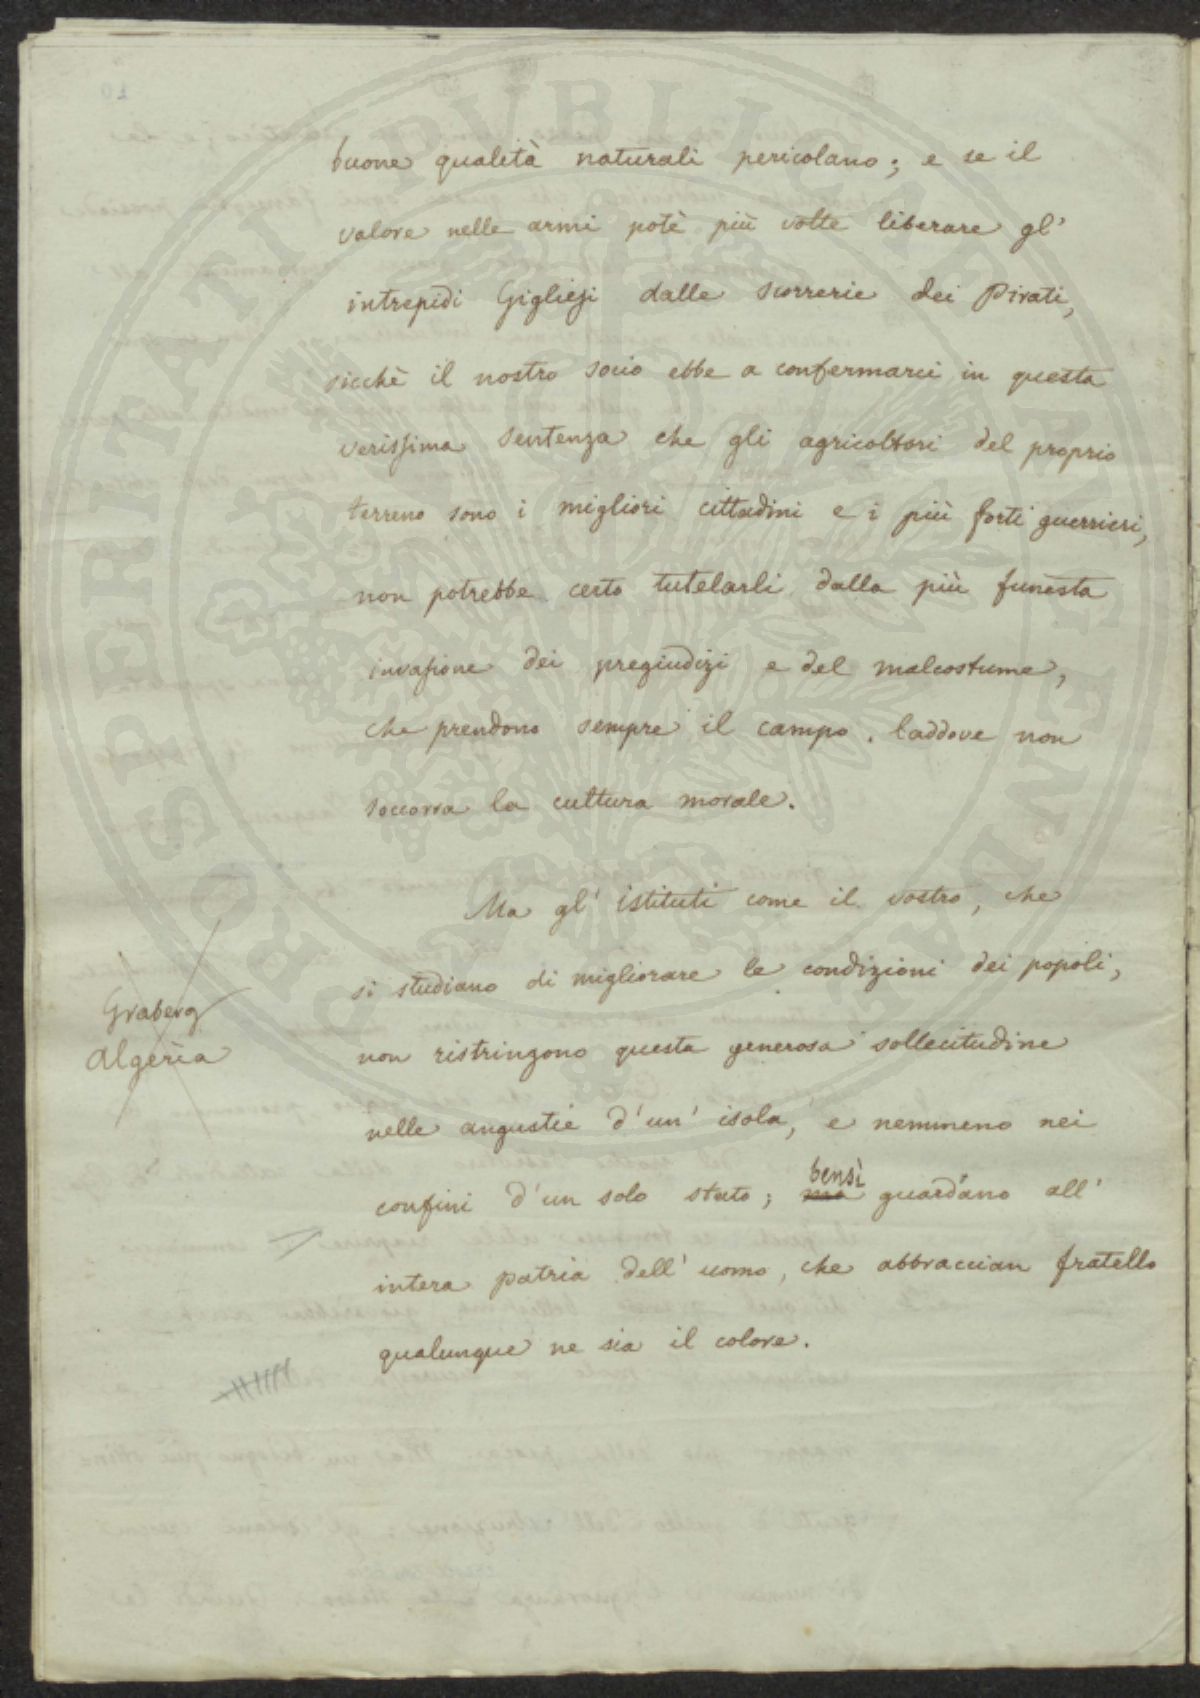 buone qualità naturali pericolano; e se il
valore nelle armi potè più volte liberare gl'
intrepidi Gigliesi dalle scorrerie dei Pirati,
sicchè il nostro socio ebbe a confermarci in questa
verissima sentenza che gli agricoltori del proprio
terreno sono i migliori cittadini e i più forti guerrieri,
non potrebbe certo tutelarli dalla più funesta
invasione dei pregiudizi e del malcostume,
che prendono sempre il campo, laddove non
soccorra la cultura morale.
Ma gl' istituti come il vostro, che
si studiano di migliorare le condizioni dei popoli,
Graberg
Algeria
non ristringono questa generosa sollecitudine
nelle angustie d'un' isola, e nemmeno nei
bensì
confini d'un solo stato; ma guardano all'
intera patria dell' uomo, che abbraccian fratello
qualunque ne sia il colore.
PROSPERITATI PUBLICAE AUGENDAE